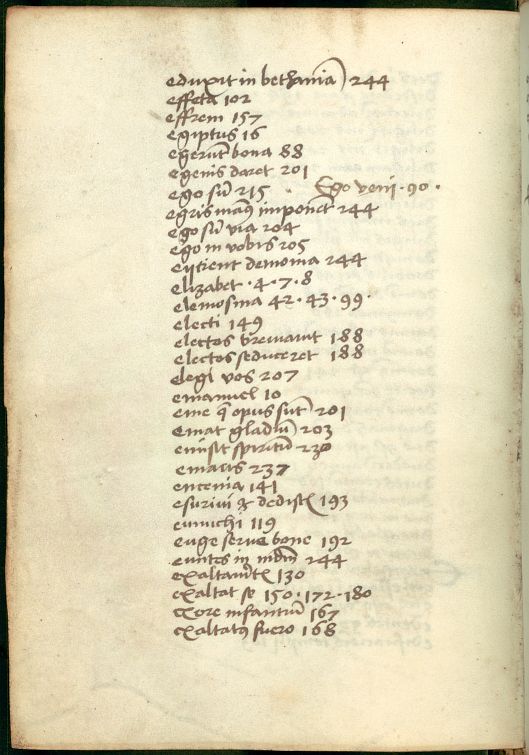 eduxit in bethania 244
effeta 102
effrem 157
egiptus 16
egerūt bona 88
egenis daret 201
ego sū 215 · Ego veni · 90 ·
egris manꝰ imponēt 244
ego sū via 204
ego in vobis 205
eiicient demonia 244
elizabet · 4 · 7 · 8
elemosina 42 · 43 · 99 ·
electi 149
electos breviavit 188
electos seduceret 188
elegi vos 207
emanuel 10
eme q̄ opus sūt 201
emat gladiū 203
emisit spiritū 230
emaus 237
encenia 141
esurivi & dedistꝭ 193
eunuchi 119
euge serve bone 192
euntes in mdm̄ 244
exaltavitꝭ 130
exaltat se 150 · 172 · 180
exore infantiū 167
exaltatꝰ fuero 168